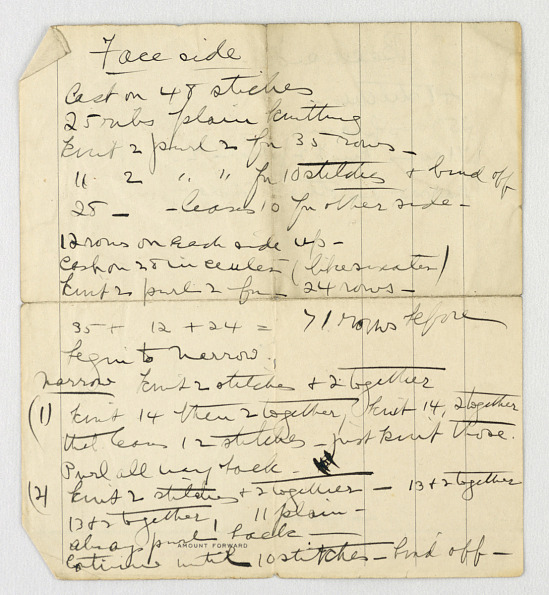 Face side
Cast on 48 stiches
25 ribs plain knitting
knit 2 purl 2 for 35 rows -
" 2 " " for 10 stitches + bind off
28 - - leaves 10 for other side -
12 rows on each side up -
Cast on 28 in center (like sweater)
knit 2 purl 2 for - 24 rows -
35 + 12 + 24 = 71 rows before
begin to narrow.
Narrow knit 2 stitches + 2 together
(1) knit 14 then 2 together, knit 14, 2 together
that leaves 12 stitches - just knit those.
Purl all way back -
(2) knit 2 stitches + 2 together - 13 + 2 together
13 + 2 together, 11 plain -
always purl back -
AMOUNT FORWARD
Continue until 10 stitches - bind off -